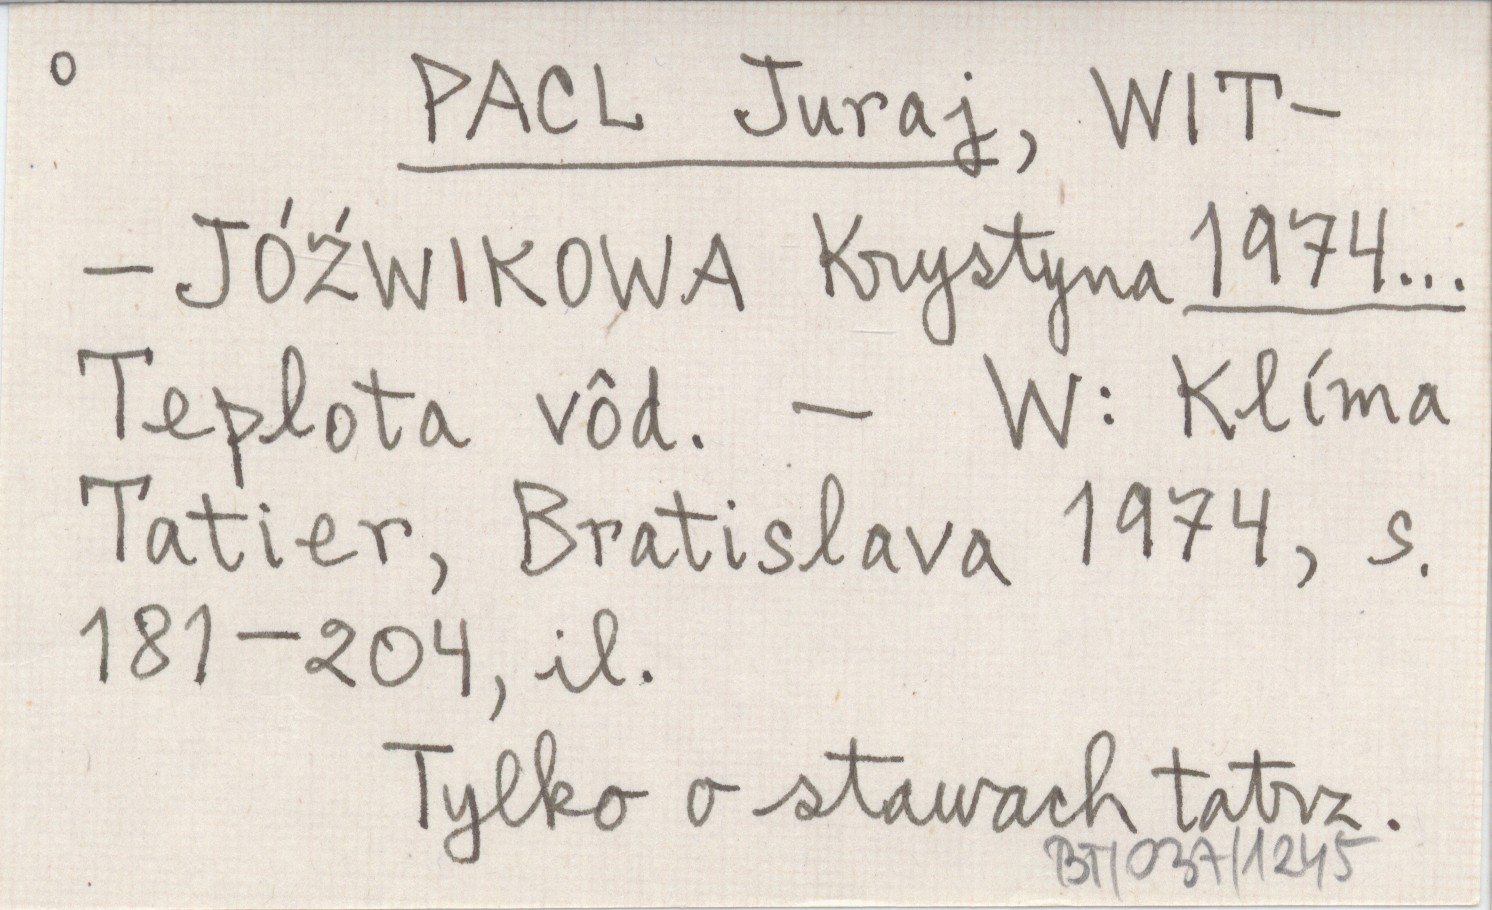 o PACL Juraj, WIT-
-JÓŹWIKOWA Krystyna 1974...
Teplota vôd. - W: Klíma
Tatier, Bratislava 1974, s.
181-204, il.
Tylko o stawach tatrz.
BT/037/1245